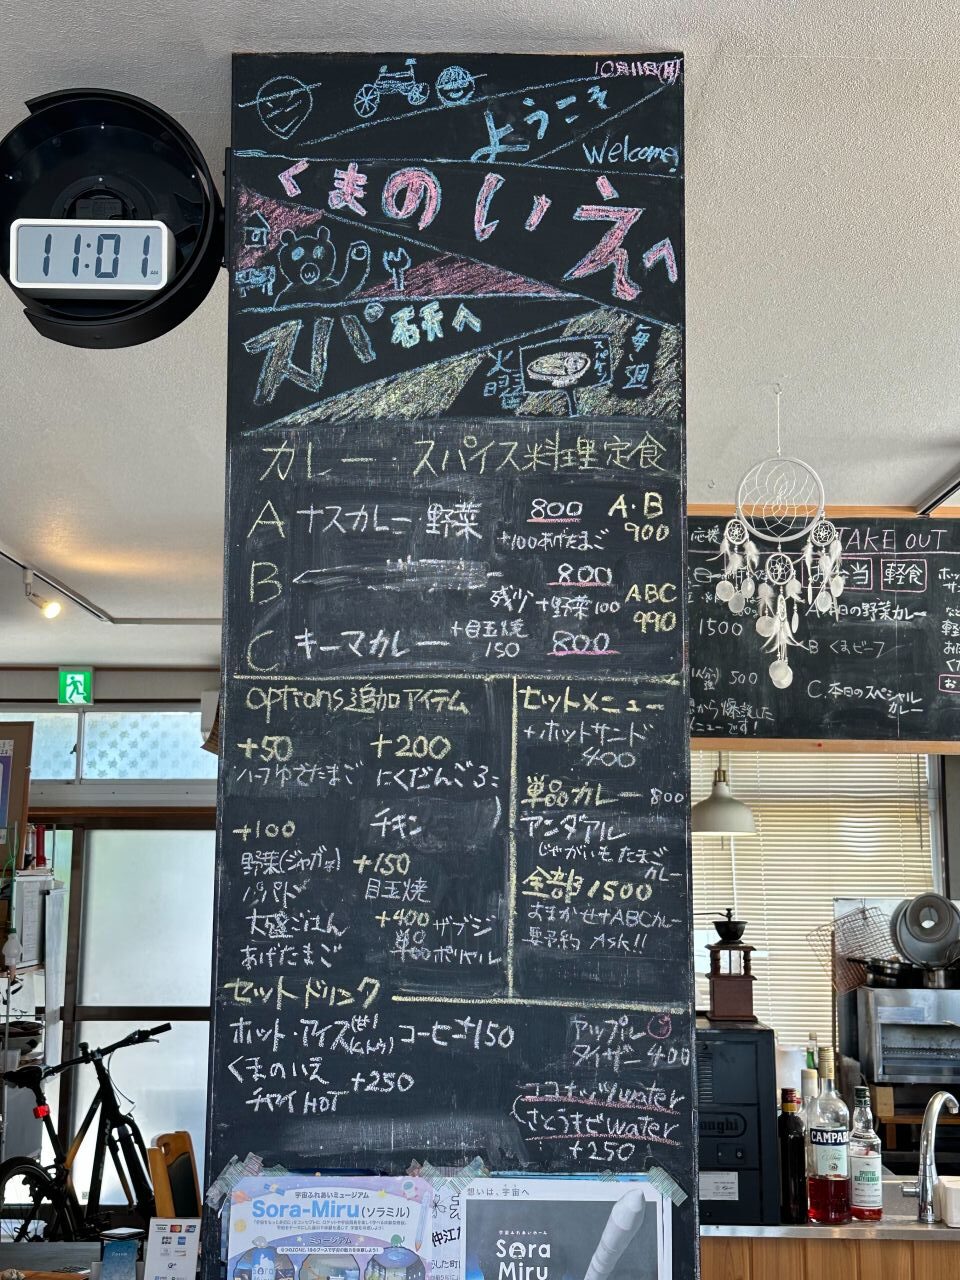 11:01 AM
ようこそ
Welcome
くまのいえへ
スパ
毎週
火曜
カレー・スパイス料理定食
A ナスカレー・野菜 800
+100あげたまご
A・B 900
B 800
残少 +野菜100
ABC 990
C キーマカレー +目玉焼 150 800
options追加アイテム
+50
ハーフゆでたまご
+100
野菜(ジャガ等)
パパド
大盛ごはん
あげたまご
+200
にくだんご3コ
チキン
+150
目玉焼
+400
サブジ
単品
ポリヤル
セットメニュー
+ホットサンド
400
単品カレー 800
アンダアル
じゃがいもたまご
カレー
全部 1500
おまかせ+ABCカレー
要予約 Ask!!
セットドリンク
ホット・アイス コーヒー+150
くまのいえ
チャイHOT +250
アップル
タイザー 400
ココナッツwater
さとうきびwater
+250
TAKE OUT
応援
お弁当 軽食
1500
500
A 本日の野菜カレー
B くまビーフ
C.本日のスペシャル
カレー
から爆誕した
メニューです!
宇宙ふれあいミュージアム
Sora-Miru(ソラミル)
ミュージアム
想いは、宇宙へ
宇宙ふれあいホール
Sora
Miru
CAMPARI
VISA